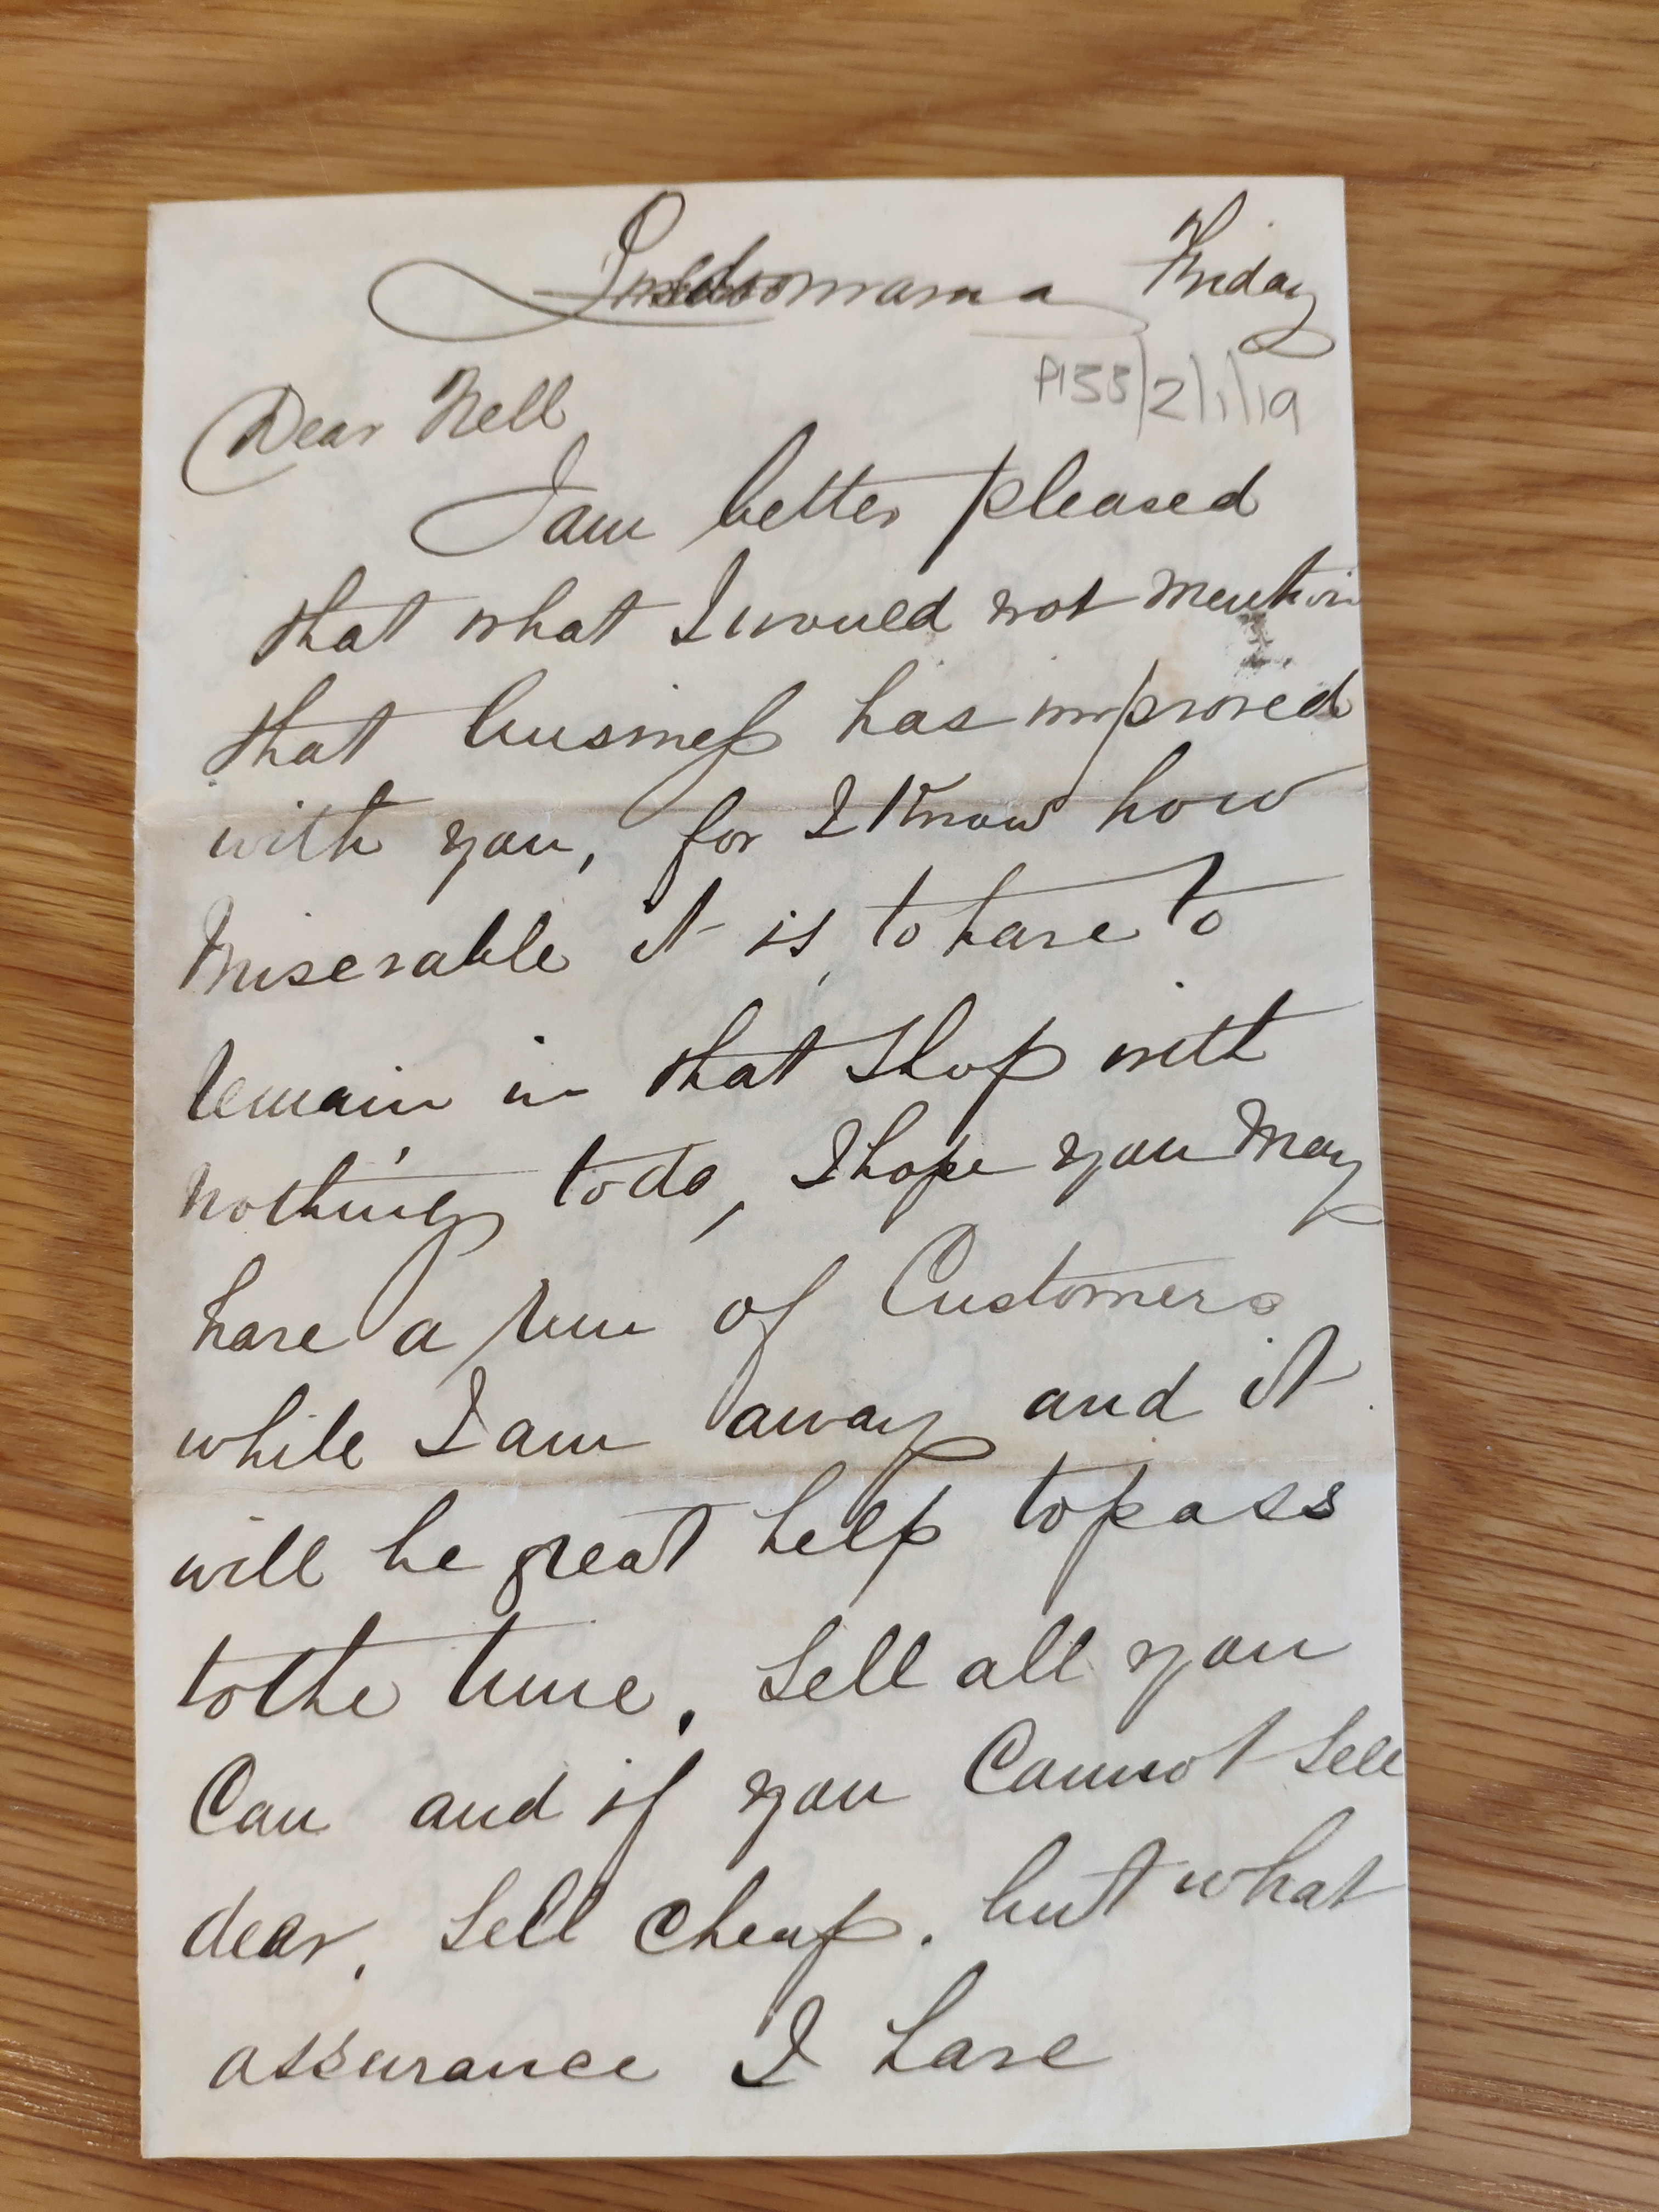 Friday
P133/2/1/19
Dear Nell
I am better pleased
that what I would not mention
that business has improved
with you, for I know how
miserable it is, to have to
remain in that shop with
nothing to do, I hope you may
have a run of Customers
while I am away and it
will be great help to pass
to the time. Sell all you
Can and if you Cannot sell
dear, sell cheap. but what
assurance I have